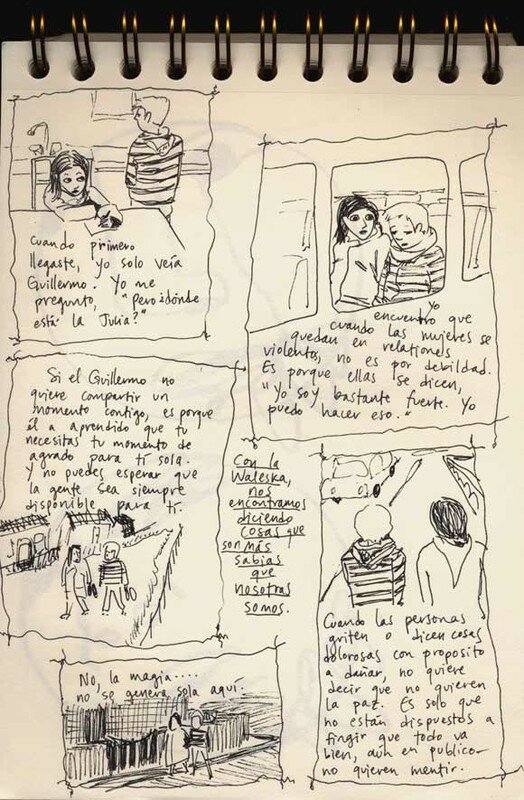 Cuando primero
llegaste, yo solo veía
Guillermo. Yo me
pregunto, "Pero ¿dónde
está la Julia?"
yo
encuentro que
cuando las mujeres se
quedan en relationes
violentas, no es por debildad.
Es porque ellas se dicen,
"Yo soy bastante fuerte. Yo
puedo hacer eso."
Si el Guillermo no
quiere compartir un
momento contigo, es porque
él a aprendido que tu
necesitas tu momento de
agrado para tí sola.
Y no puedes esperar que
la gente sea siempre
disponible para tí.
Con la
Waleska,
nos
encontramos
diciendo
cosas que
son más
sabias
que
nosotras
somos.
Cuando las personas
griten o dicen cosas
dolorosas con proposito
a dañar, no quiere
decir que no quieren
la paz. Es solo que
no están dispuestos a
fingir que todo va
bien, aún en publico—
no quieren mentir.
No, la magia....
no se genera sola aquí.